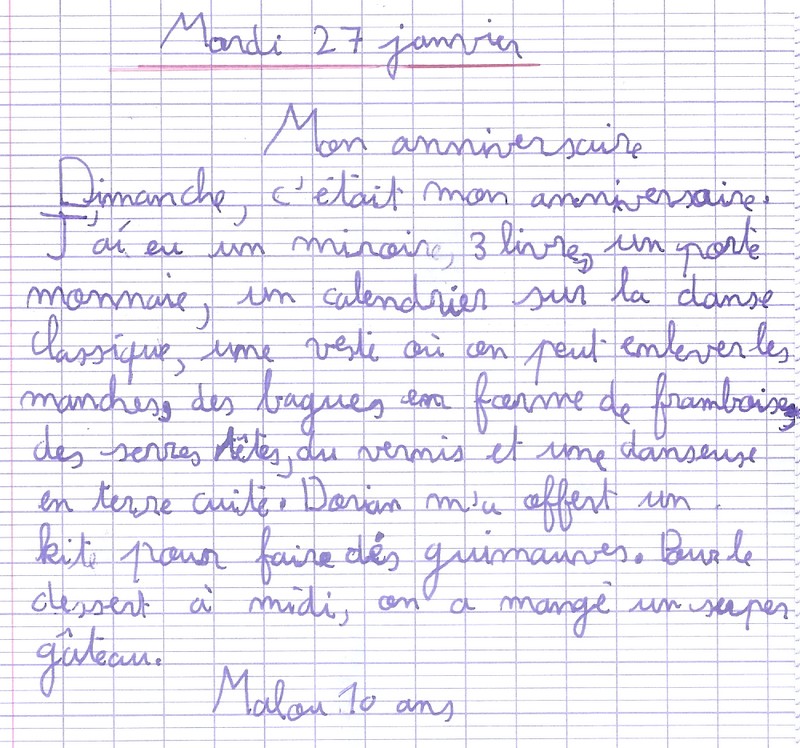 Mardi 27 janvier
Mon anniversaire
Dimanche, c'était mon anniversaire.
J'ai eu un miroire, 3 livres, un porte
monnaie, un calendrier sur la danse
classique, une veste où on peut enlever les
manches, des bagues en forme de framboises,
des serres têtes, du vernis et une danseuse
en terre cuite. Dorian m'a offert un
kite pour faire des guimauves. Pour le
dessert à midi, on a mangé un super
gâteau.
Malou 10 ans